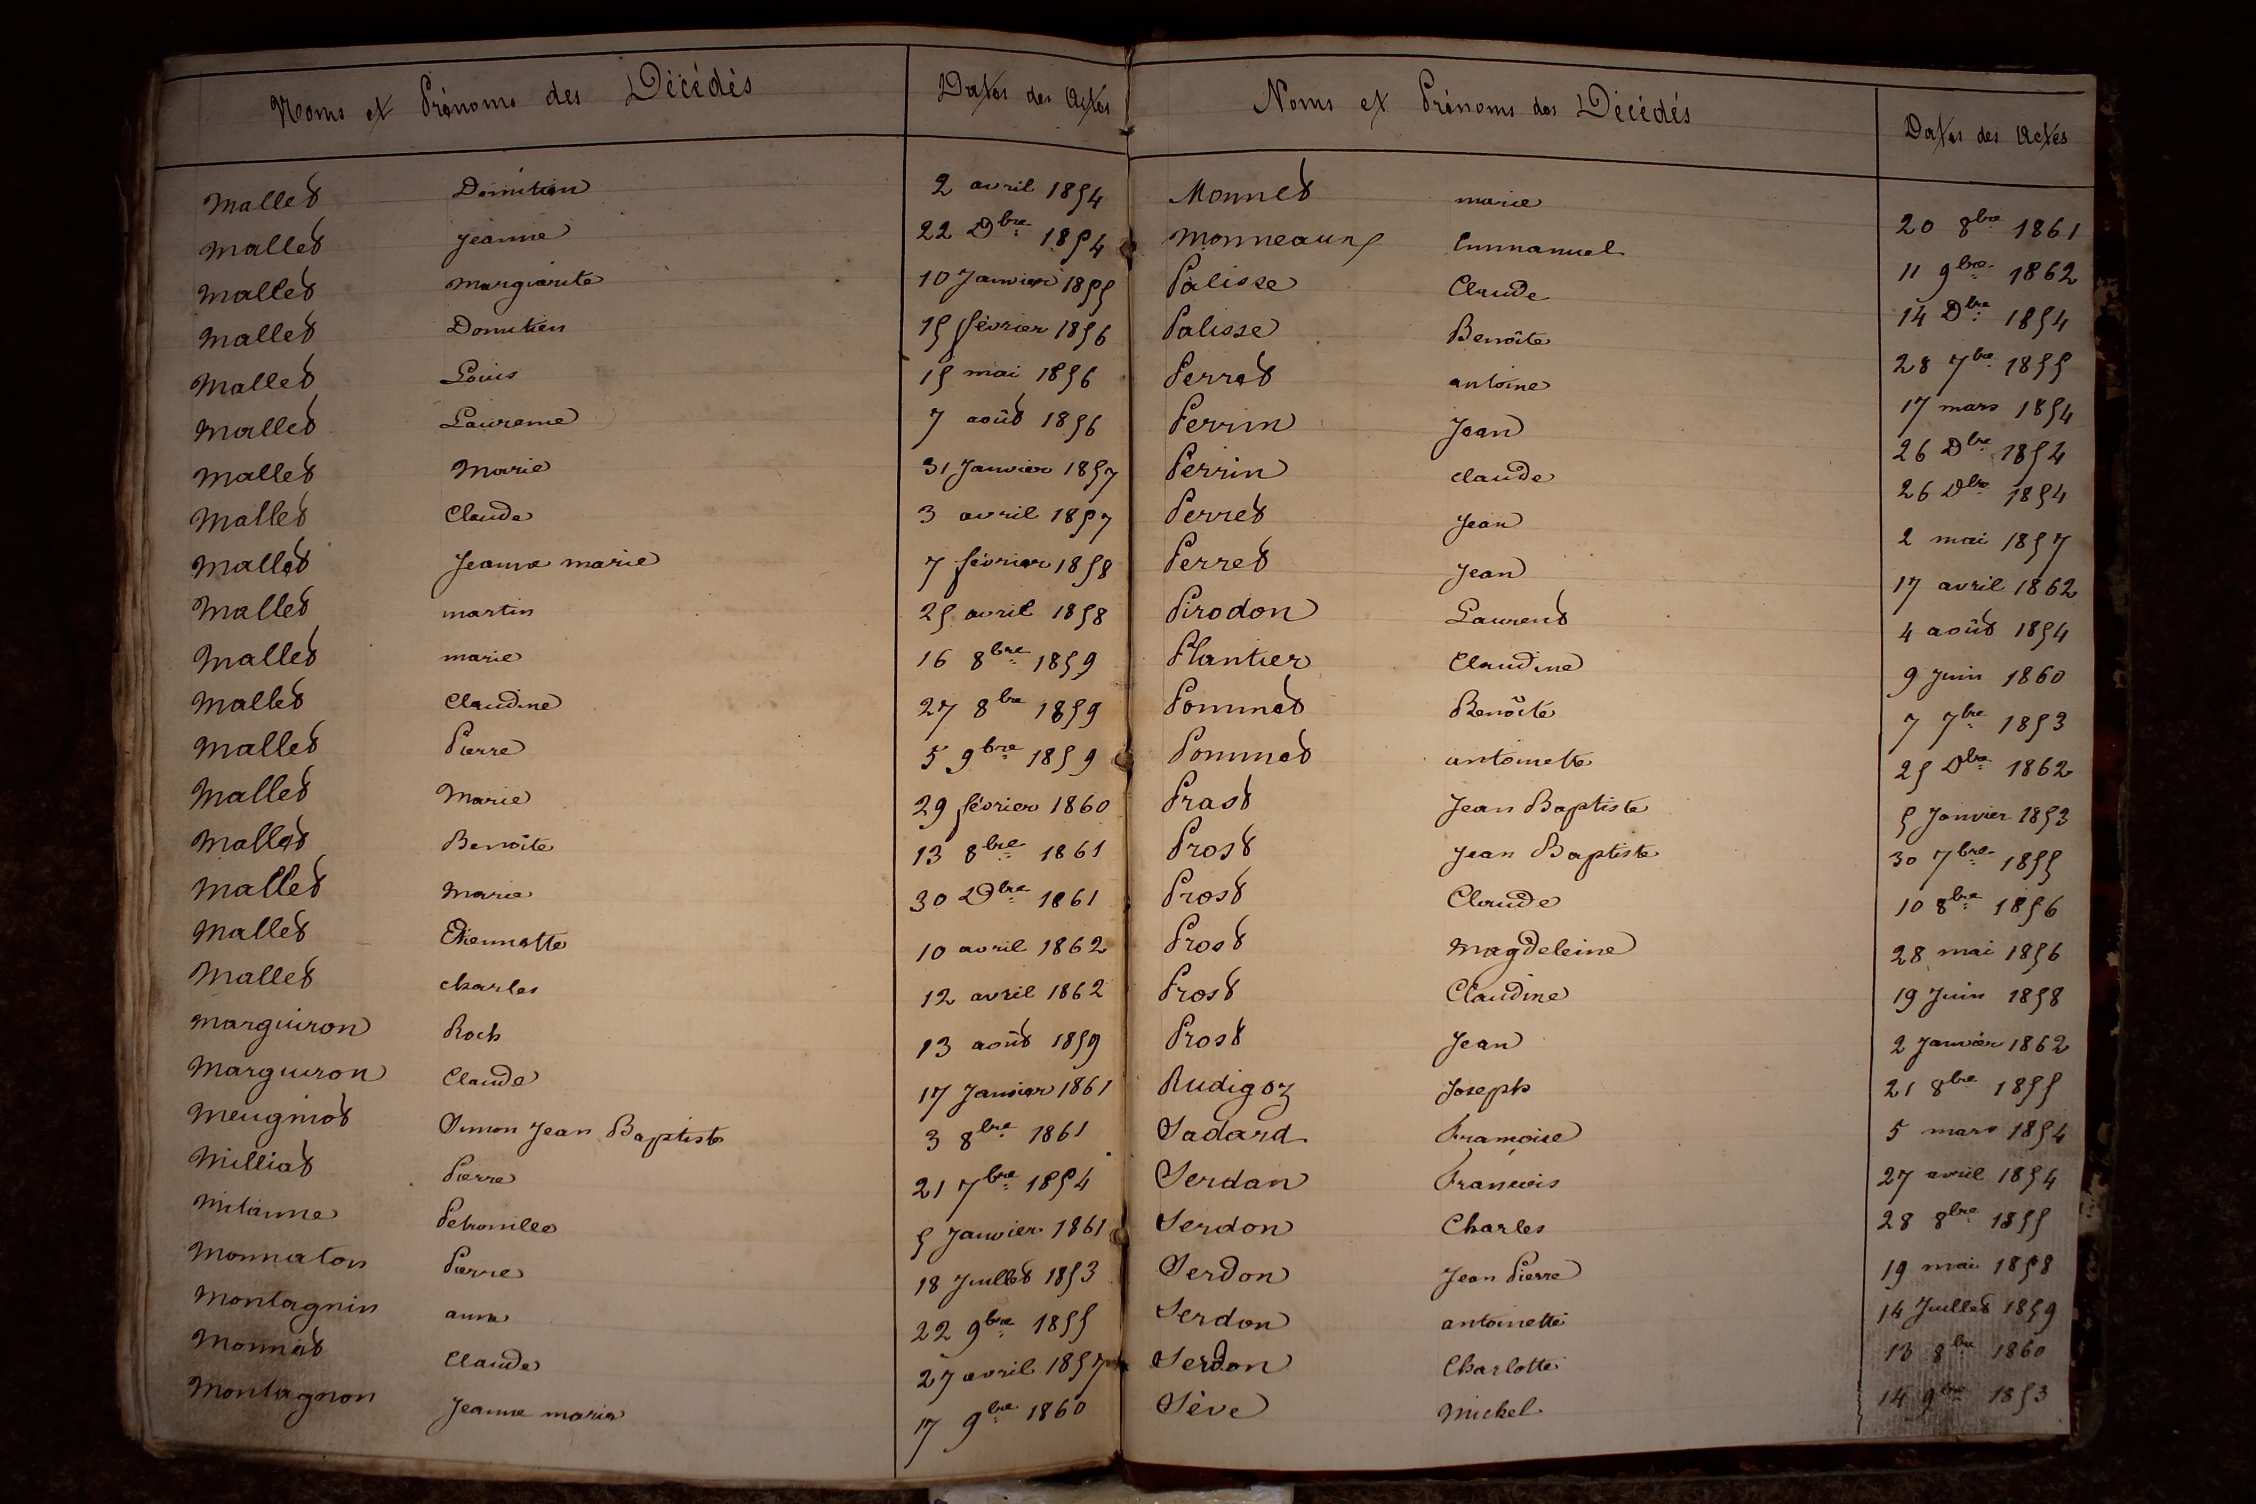 Noms et Prénoms des Décédés Dates des Actes
Mallet Domitien 2 avril 1854
Mallet Jeanne 22 Dbre 1854
Mallet Marguerite 10 Janvier 1855
Mallet Domitien 15 février 1856
Mallet Louis 15 mai 1856
Mallet Laurence 7 août 1856
Mallet Marie 31 Janvier 1857
Mallet Claude 3 avril 1857
Mallet Jeanne marie 7 février 1858
Mallet martin 25 avril 1858
Mallet marie 16 8bre 1859
Mallet Claudine 27 8bre 1859
Mallet Pierre 5 9bre 1859
Mallet Marie 29 février 1860
Mallet Benoîte 13 8bre 1861
Mallet Marie 30 Dbre 1861
Mallet Etiennette 10 avril 1862
Mallet charles 12 avril 1862
Marguiron Roch 13 août 1859
Marguiron Claude 17 Janvier 1861
Meugniot Simon Jean Baptiste 3 8bre 1861
Milliat Pierre 21 7bre 1854
Mitanne Petronille 5 Janvier 1861
Monnaton Pierre 18 Juillet 1853
Montagnin anne 22 9bre 1855
Monnet Claude 27 avril 1857
Montagnon Jeanne marie 17 9bre 1860
Noms et Prénoms des Décédés Dates des Actes
Monnet marie 20 8bre 1861
Monneaux Emmanuel 11 9bre 1862
Palisse Claude 14 Dbre 1854
Palisse Benoîte 28 7bre 1855
Perret antoine 17 mars 1854
Perrin Jean 26 Dbre 1854
Perrin claude 26 Dbre 1854
Perret Jean 2 mai 1857
Perret Jean 17 avril 1862
Pirodon Laurent 4 août 1854
Plantier Claudine 9 Juin 1860
Pommet Benoîte 7 7bre 1853
Pommet antoinette 25 Dbre 1862
Prast Jean Baptiste 5 Janvier 1853
Prost Jean Baptiste 30 7bre 1855
Prost Claude 10 8bre 1856
Prost Magdeleine 28 mai 1856
Prost Claudine 19 Juin 1858
Prost Jean 2 Janvier 1862
Rudigoz Joseph 21 8bre 1855
Sadard Francoise 5 mars 1854
Serdan Francois 27 avril 1854
Serdon Charles 28 8bre 1855
Serdon Jean Pierre 19 mai 1858
Serdon antoinette 14 Juillet 1859
Serdon Charlotte 13 8bre 1860
Sève Michel 14 9bre 1853